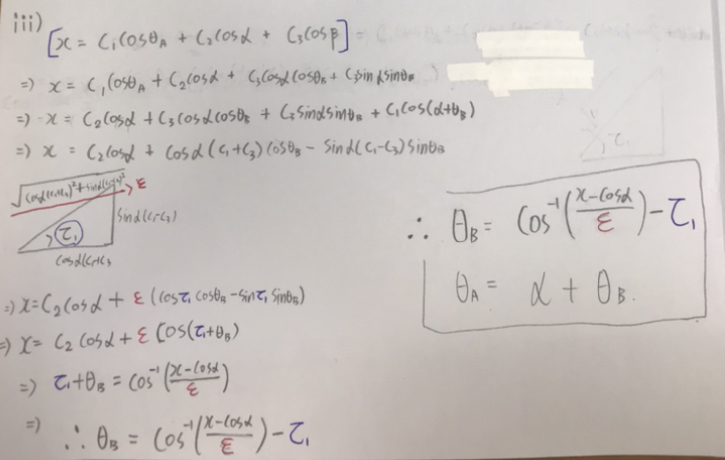 iii)
[x = C₁cosθ_A + C₂cosα + C₃cosβ]
=> x = C₁cosθ_A + C₂cosα + C₃cosαcosθ_B + C₃sinαsinθ_B
=> x = C₂cosα + C₃cosαcosθ_B + C₃sinαsinθ_B + C₁cos(α+θ_B)
=> x = C₂cosα + cosα(C₁+C₃)cosθ_B - sinα(C₁-C₃)sinθ_B
ε
sinα(C₁-C₃)
τ₁
=> x = C₂cosα + ε(cosτ₁cosθ_B - sinτ₁sinθ_B)
=> x = C₂cosα + ε[cos(τ₁+θ_B)
=> τ₁+θ_B = cos⁻¹((x-cosα)/ε)
=> ∴ θ_B = cos⁻¹((x-cosα)/ε) - τ₁
∴ θ_B = cos⁻¹((x-cosα)/ε) - τ₁
θ_A = α + θ_B.